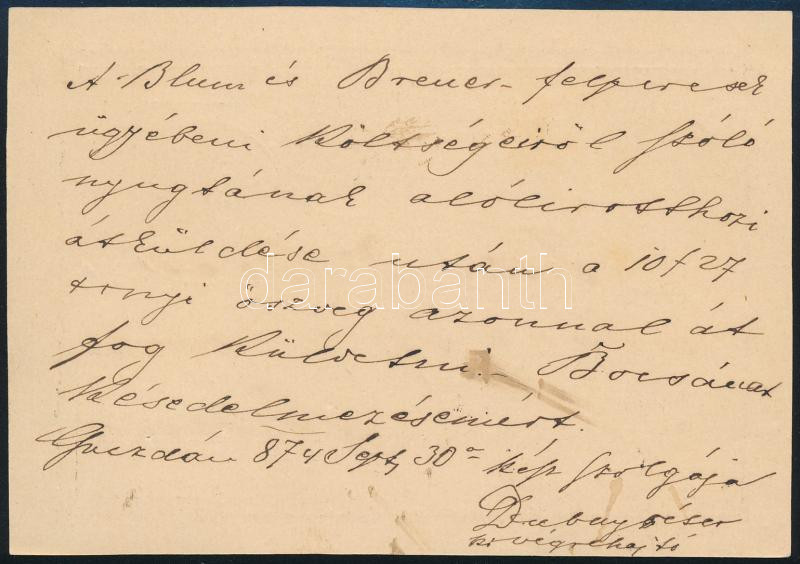 A Blum és Breuer felperesek
ügyébeni költségeiröl szóló
nyugtának alólirotthozi
átküldése után a 10 f 27
xrnyi öszveg azonnal át
fog küldetni. Bocsánat
késedelmezésemért.
874 Sept 30 kész szolgája
kir végrehajtó
darabanth